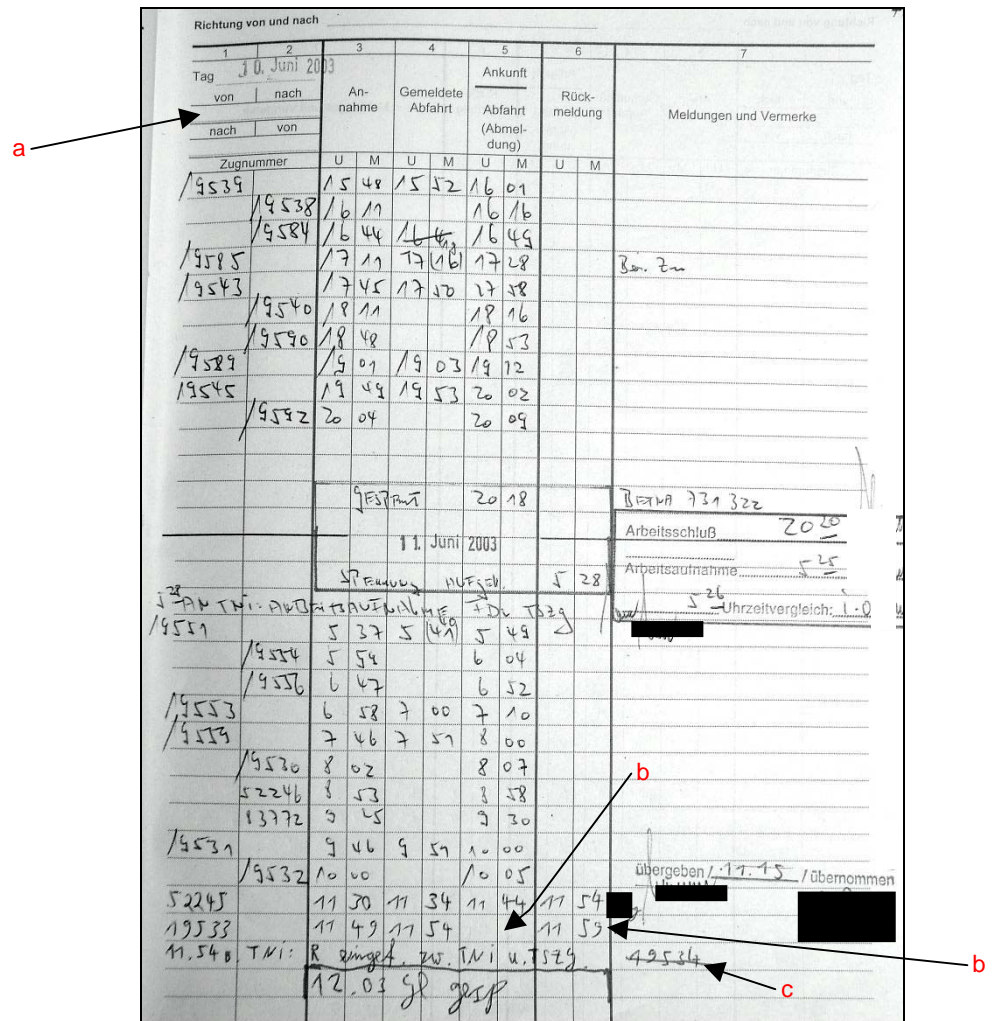 Richtung von und nach
1 2 3 4 5 6 7
Tag 10. Juni 2003
von nach
nach von
Zugnummer
An-
nahme
Gemeldete
Abfahrt
Ankunft
Abfahrt
(Abmel-
dung)
Rück-
meldung
Meldungen und Vermerke
U M U M U M U M
a
19539 15 48 15 52 16 01
19538 16 11 16 16
19584 16 44 16 49
19585 17 11 17 (16) 17 28
19543 17 45 17 50 17 58
19540 18 11 18 16
19590 18 48 18 53
19589 19 01 19 03 19 12
19545 19 49 19 53 20 02
19592 20 04 20 09
gesperrt 20 18 731 322
Arbeitsschluß 20 20
11. Juni 2003
Arbeitsaufnahme 5 25
Sperrung aufgeh. 5 28
5 26 Uhrzeitvergleich: i.O
5 28 an TNi: Arbeitsaufnahme FDL TSzg
19551 5 37 5 (41) 5 49
19554 5 59 6 04
19556 6 47 6 52
19553 6 58 7 00 7 10
19559 7 46 7 51 8 00
19530 8 02 8 07
b
52246 8 53 8 58
83772 9 25 9 30
19531 9 46 9 51 10 00
19532 10 00 10 05
übergeben / 11.15 / übernommen
52245 11 30 11 34 11 44 11 54
19533 11 49 11 54 11 59
11.54 TNi: R eingef. zw. TNi u. TSzg. 19534
b
c
12.03 Gl gesp